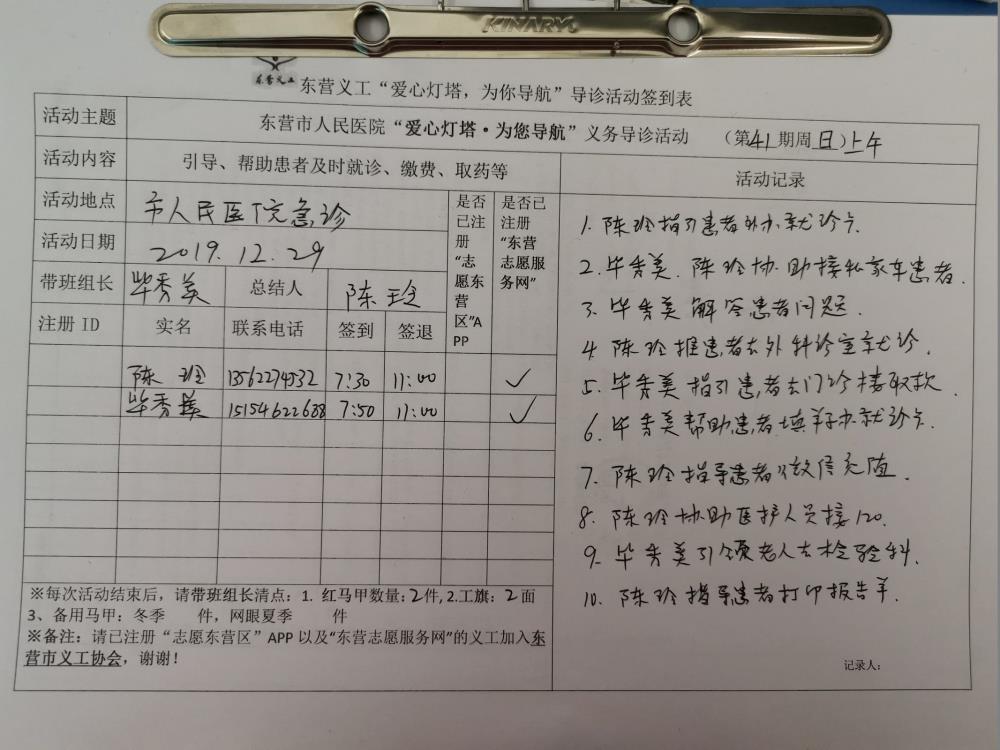 KINARY
东营义工
东营义工“爱心灯塔，为你导航”导诊活动签到表
活动主题
东营市人民医院“爱心灯塔·为您导航”义务导诊活动 （第41期周日）上午
活动内容
引导、帮助患者及时就诊、缴费、取药等
活动记录
活动地点
市人民医院急诊
活动日期
2019.12.29
是否已注册“志愿东营区”APP
是否已注册“东营志愿服务网”
带班组长
毕秀美
总结人
陈玲
注册 ID 实名 联系电话 签到 签退
陈玲 13562274532 7:30 11:00 ✓
毕秀美 15154622688 7:50 11:00 ✓
1. 陈玲指引患者外办就诊卡.
2. 毕秀美.陈玲协助接私家车患者.
3. 毕秀美解答患者问题.
4 陈玲推患者去外科诊室就诊.
5. 毕秀美指引患者去门诊楼取款
6. 毕秀美帮助患者填单办就诊卡.
7. 陈玲指导患者微信充值.
8. 陈玲协助医护人员接120.
9. 毕秀美引领老人去检验科.
10. 陈玲指导患者打印报告单.
※每次活动结束后，请带班组长清点：1. 红马甲数量：2件, 2.工旗：2面
3、备用马甲：冬季 件，网眼夏季 件
※备注：请已注册“志愿东营区”APP 以及“东营志愿服务网”的义工加入东
营市义工协会，谢谢！
记录人：